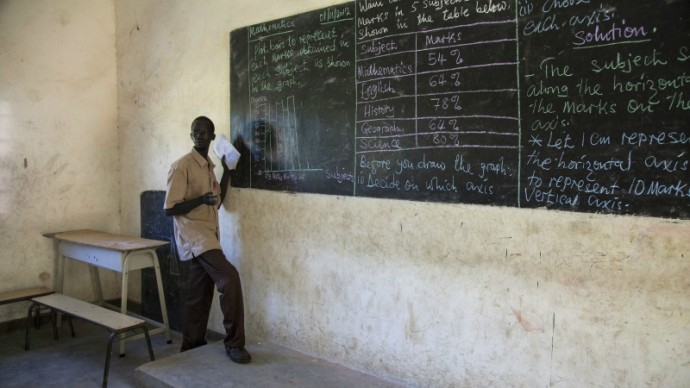 Mathematics
Plot bars to represent
each Marks obtained in
each subject as shown
in the graph.
Subject
Marks in 5 Subjects
Shown in the table below.
Subject Marks
Mathematics 54 %
English 64 %
History 78 %
Geography 64 %
Science 80 %
Before you draw the graph:
i) Decide on which axis
ii) Choose
each axis.
Solution.
- The Subject s
along the horizontal
the marks on the
axis.
* Let 1 cm represent
the horizontal axis
to represent 10 Marks
vertical axis.